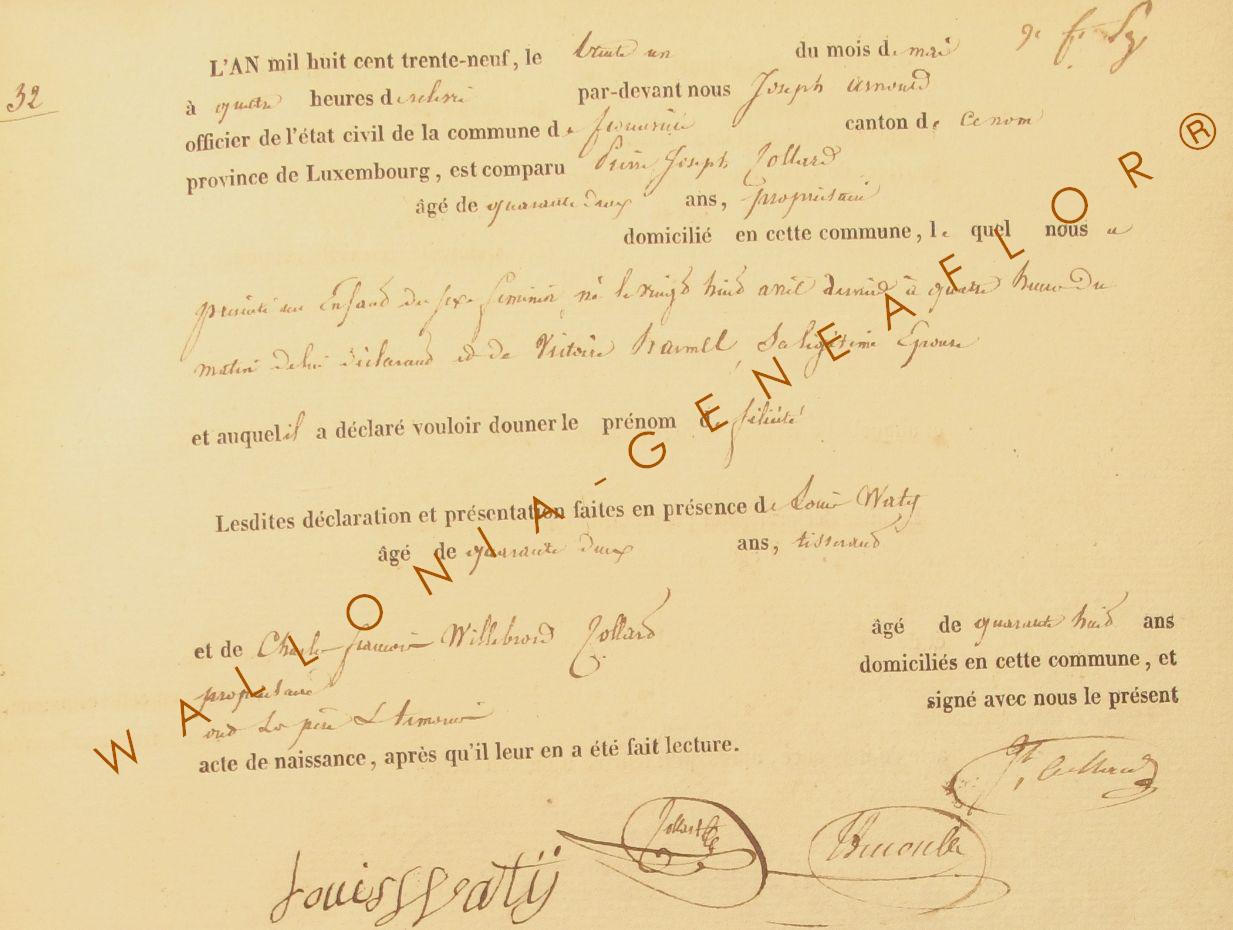 32
L'AN mil huit cent trente-neuf, le trente un du mois de mai
à quatre heures de relevé par-devant nous Joseph Arnould
officier de l'état civil de la commune de canton de ce nom
province de Luxembourg, est comparu Pierre Joseph Collard
âgé de quarante deux ans, propriétaire
domicilié en cette commune, le quel nous a
présenté un Enfand du sexe feminin, né le vingt huid avril dernier à quatre heures du
matin de lui déclarand et de Victoire hamel, Sa légitime Epouse
et auquel il a déclaré vouloir donner le prénom de félicité
Lesdites déclaration et présentation faites en présence de Louis Waty
âgé de quarante deux ans, tisserand
et de Charles françois Willebrord Collard âgé de quarante huid ans
propriétaire domiciliés en cette commune, et
ond Le père & temoins signé avec nous le présent
acte de naissance, après qu'il leur en a été fait lecture.
Collard
Louis Watÿ
WALLONIA-GENEAFLOR®